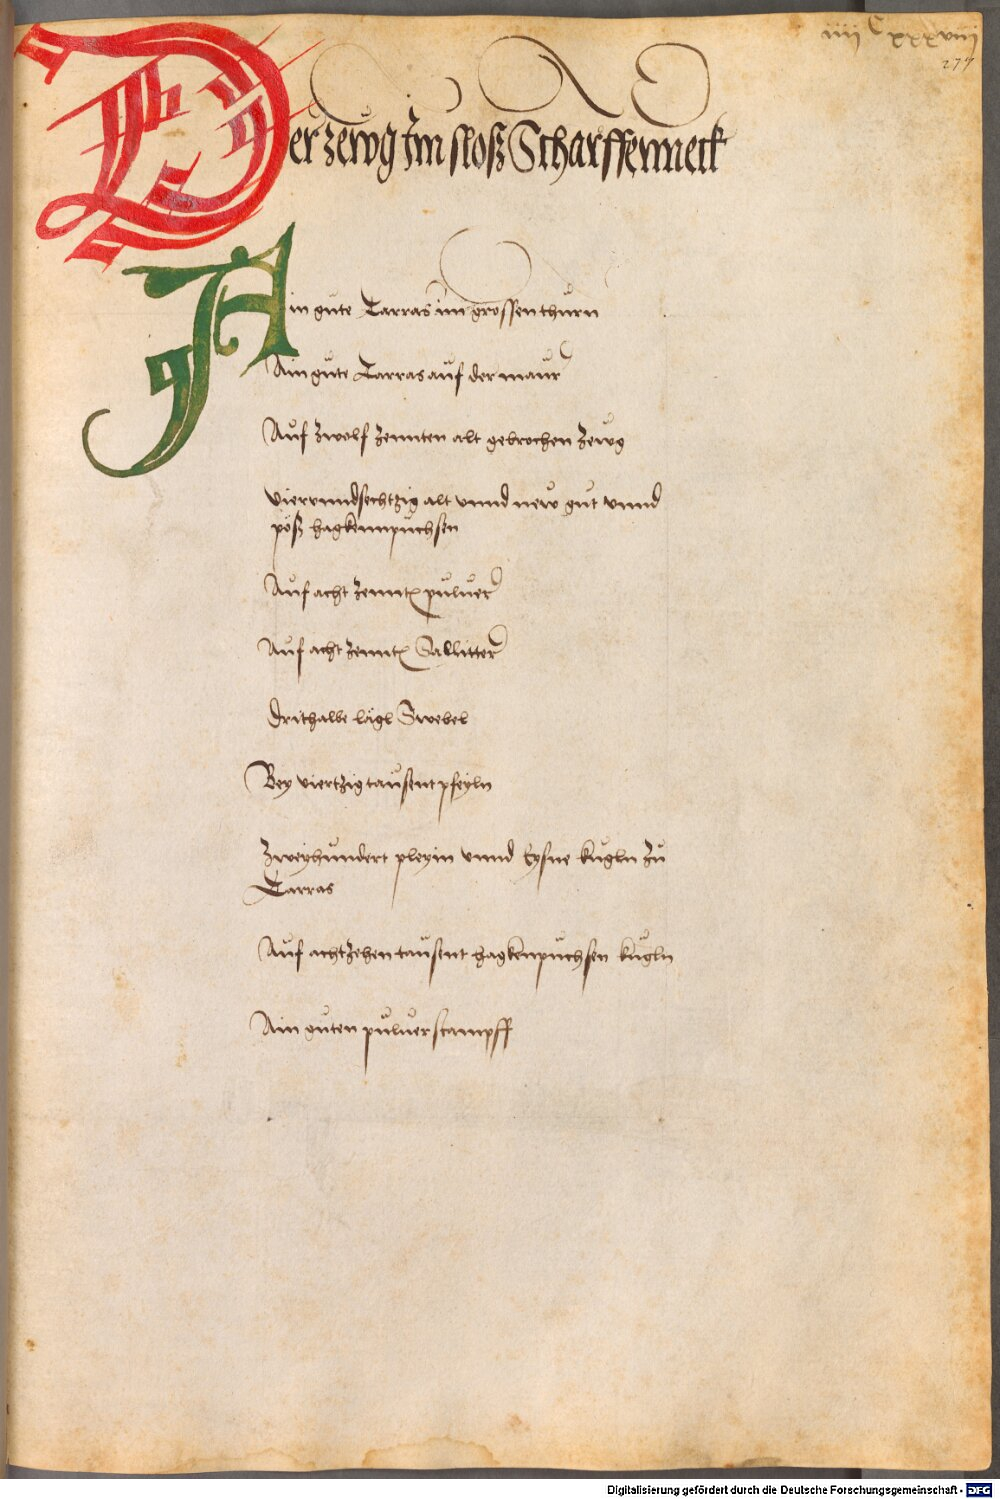 iiii C xxxviii
277
Der zewg Im sloß Scharffenneck
Ain gute Tarras im grossen thurn
Ain gute Tarras auf der maur
Auf zwolf zennten alt gebrochen zewg
vierundsechtzig alt vnnd new gut vnnd
pöß hagkennpuchsen
Auf acht zennt puluer
Auf acht zennt Sallitter
drithalbe lägl Swebel
Bey viertzig tausent pfeyln
zweyhundert pleyin vnnd Eysne kugln zu
Tarras
Auf achtzehen tausent hagkenpuchsen kugln
Ain guten puluer stampff
Digitalisierung gefördert durch die Deutsche Forschungsgemeinschaft - DFG